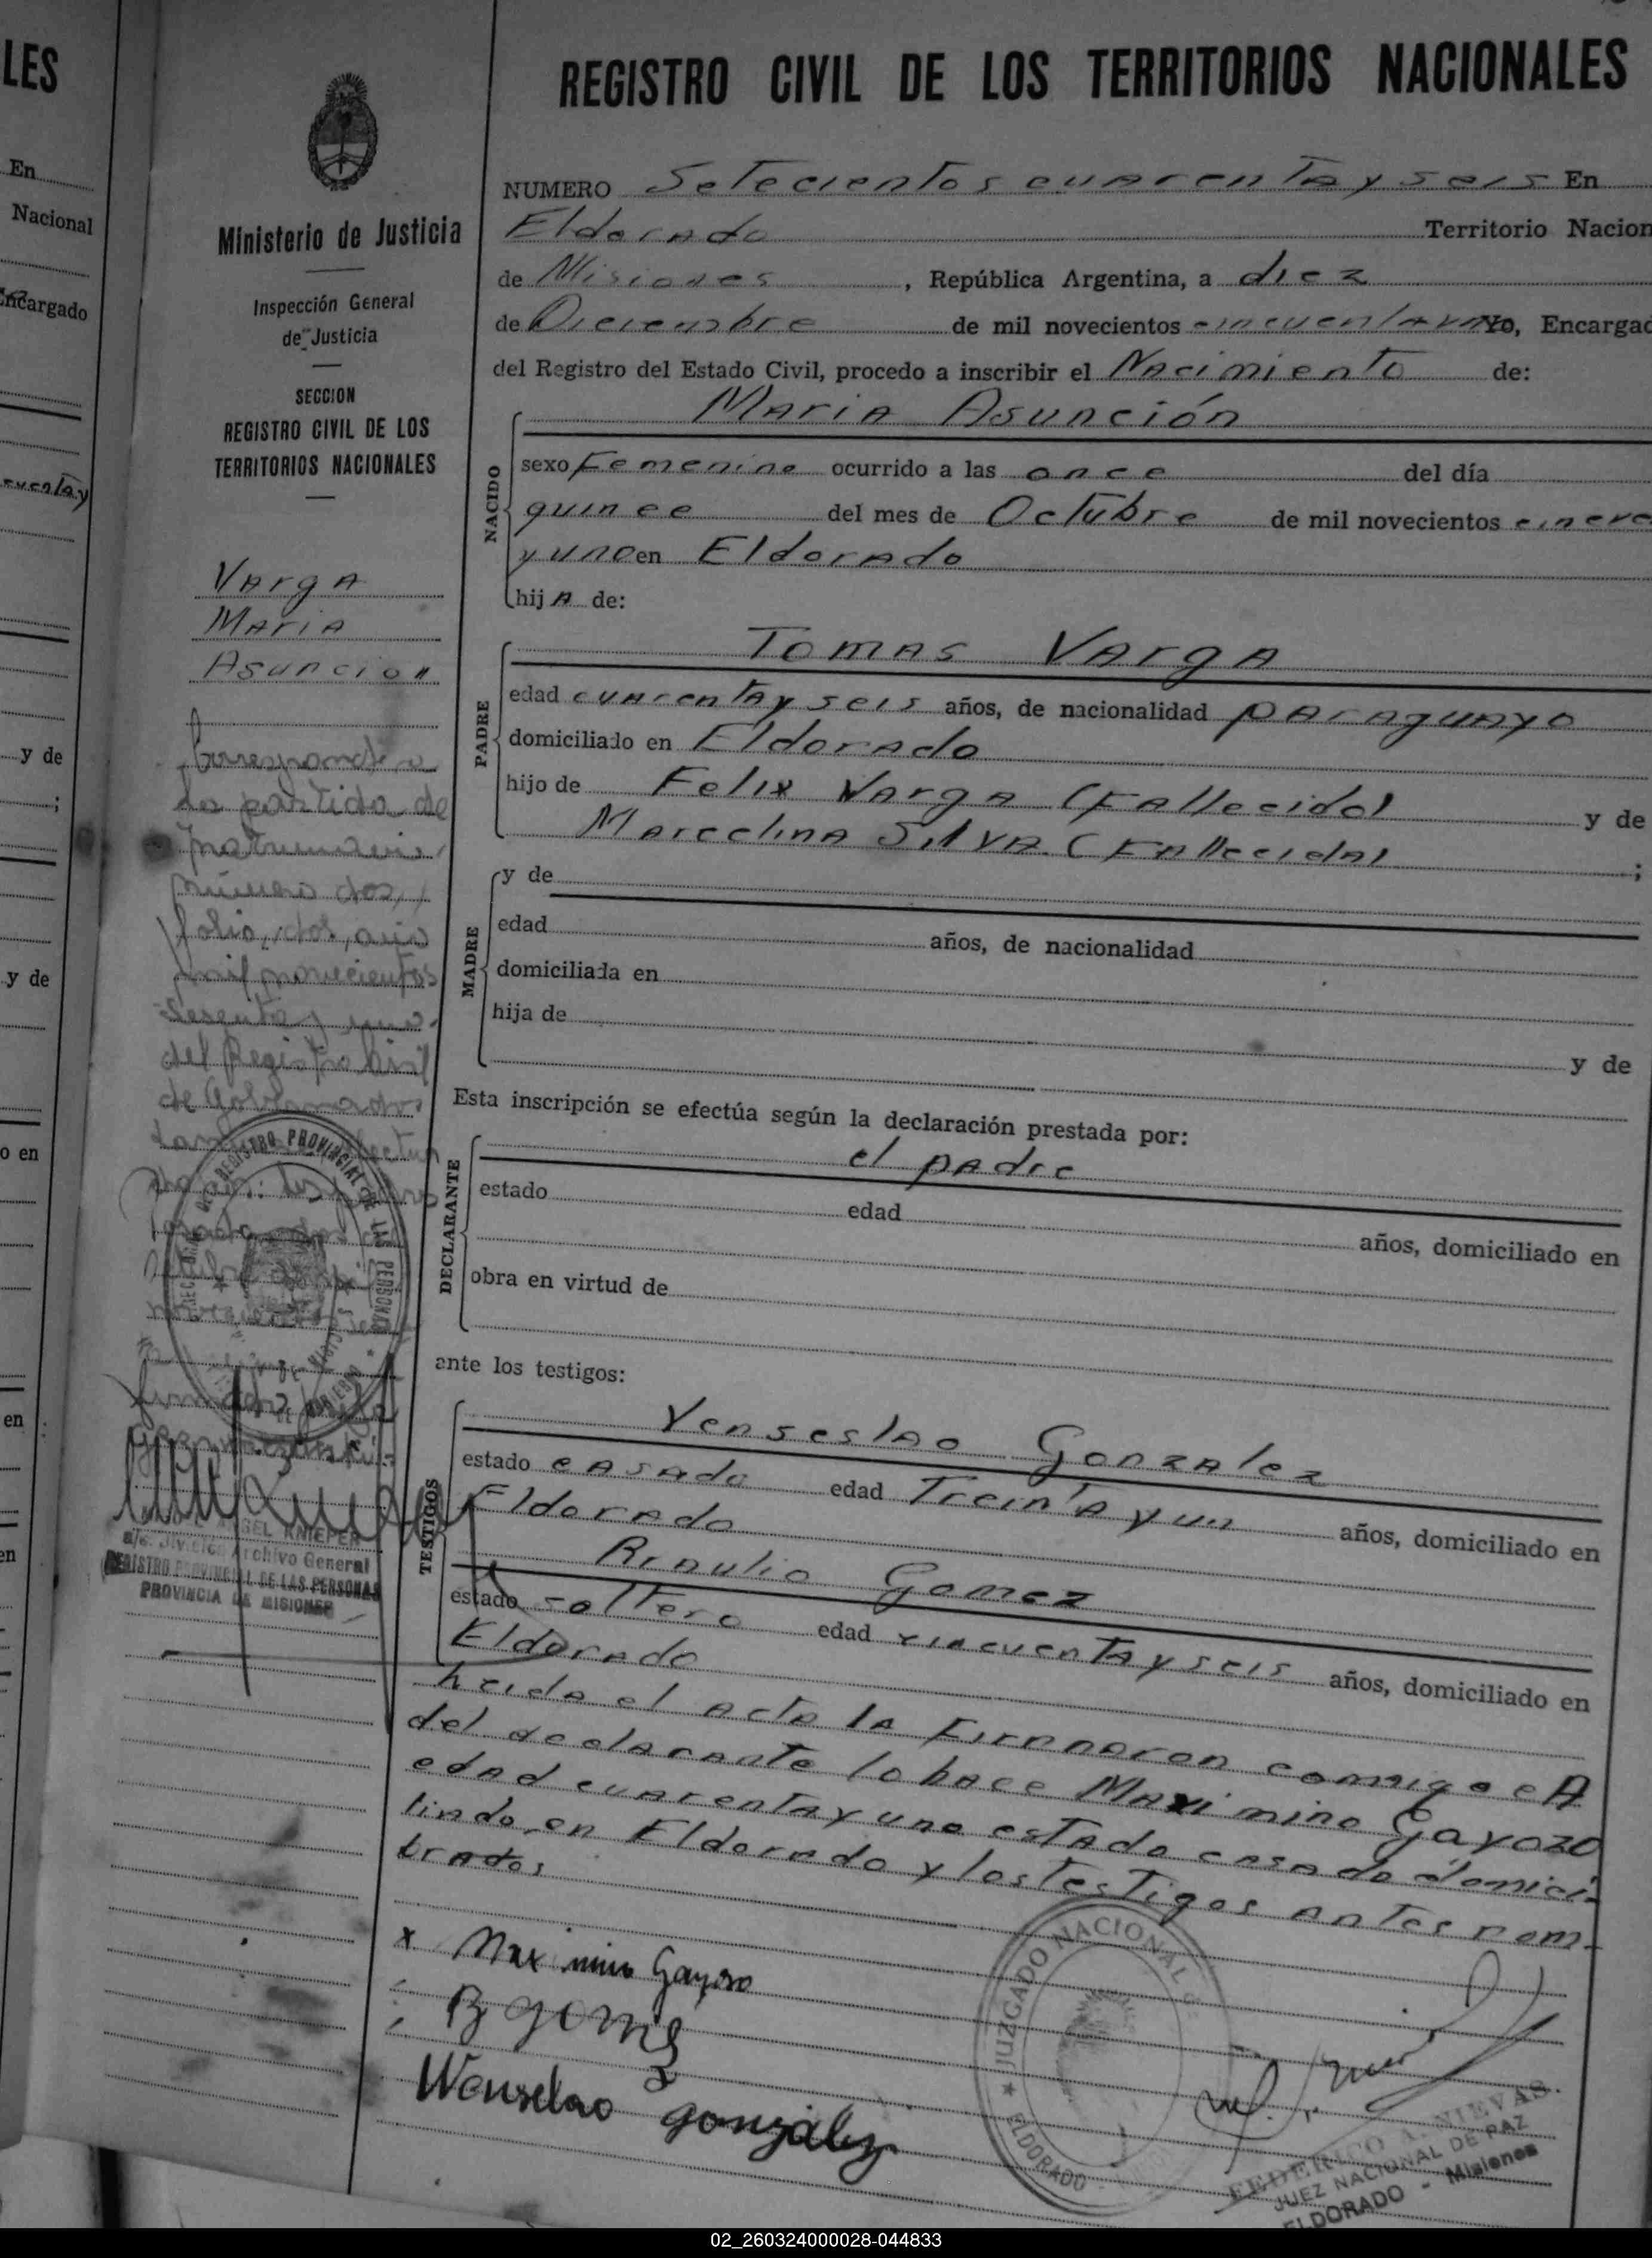 LES
En
Nacional
Encargado
cuenta y
y de
;
y de
o en
en
en
Ministerio de Justicia
Inspección General
de Justicia
SECCION
REGISTRO CIVIL DE LOS
TERRITORIOS NACIONALES
Varga
Maria
Asuncion
Corresponde a
la partida de
matrimonio
número dos,
folio, dos, año
mil novecientos
sesenta y uno
del Registro Civil
de
REGISTRO PROVINCIAL DE LAS PERSONAS
KNIEPER
a/c. División Archivo General
REGISTRO PROVINCIAL DE LAS PERSONAS
PROVINCIA DE MISIONES
REGISTRO CIVIL DE LOS TERRITORIOS NACIONALES
NUMERO Setecientos cuarenta y seis En
Eldorado Territorio Nacion
de Misiones, República Argentina, a diez
de Diciembre de mil novecientos cincuenta y uno Yo, Encargad
del Registro del Estado Civil, procedo a inscribir el Nacimiento de:
NACIDO
Maria Asunción
sexo Femenino ocurrido a las once del día
quince del mes de Octubre de mil novecientos cincue
y uno en Eldorado
hija de:
PADRE
Tomas Varga
edad cuarenta y seis años, de nacionalidad paraguayo
domiciliado en Eldorado
hijo de Felix Varga (Fallecido) y de
Marcelina Silva (Fallecida) ;
MADRE
y de
edad años, de nacionalidad
domiciliada en
hija de
y de
Esta inscripción se efectúa según la declaración prestada por:
DECLARANTE
el padre
estado edad años, domiciliado en
obra en virtud de
ante los testigos:
TESTIGOS
Venseslao Gonzalez
estado casado edad Treinta y un años, domiciliado en
Eldorado
Braulio Gomez
estado soltero edad cincuenta y seis años, domiciliado en
Eldorado
heida el acta la Firmaron comigo e A
del declarante lo hace Maximino Gayozo
edad cuarenta y uno estado casado domici-
liado en Eldorado y los testigos antes nom-
brados
x Maximino Gayoso
B gomez
Wenselao gonzalez
JUZGADO NACIONAL
ELDORADO
FEDERICO A. NIEVAS
JUEZ NACIONAL DE PAZ
ELDORADO - Misiones
02_260324000028-044833